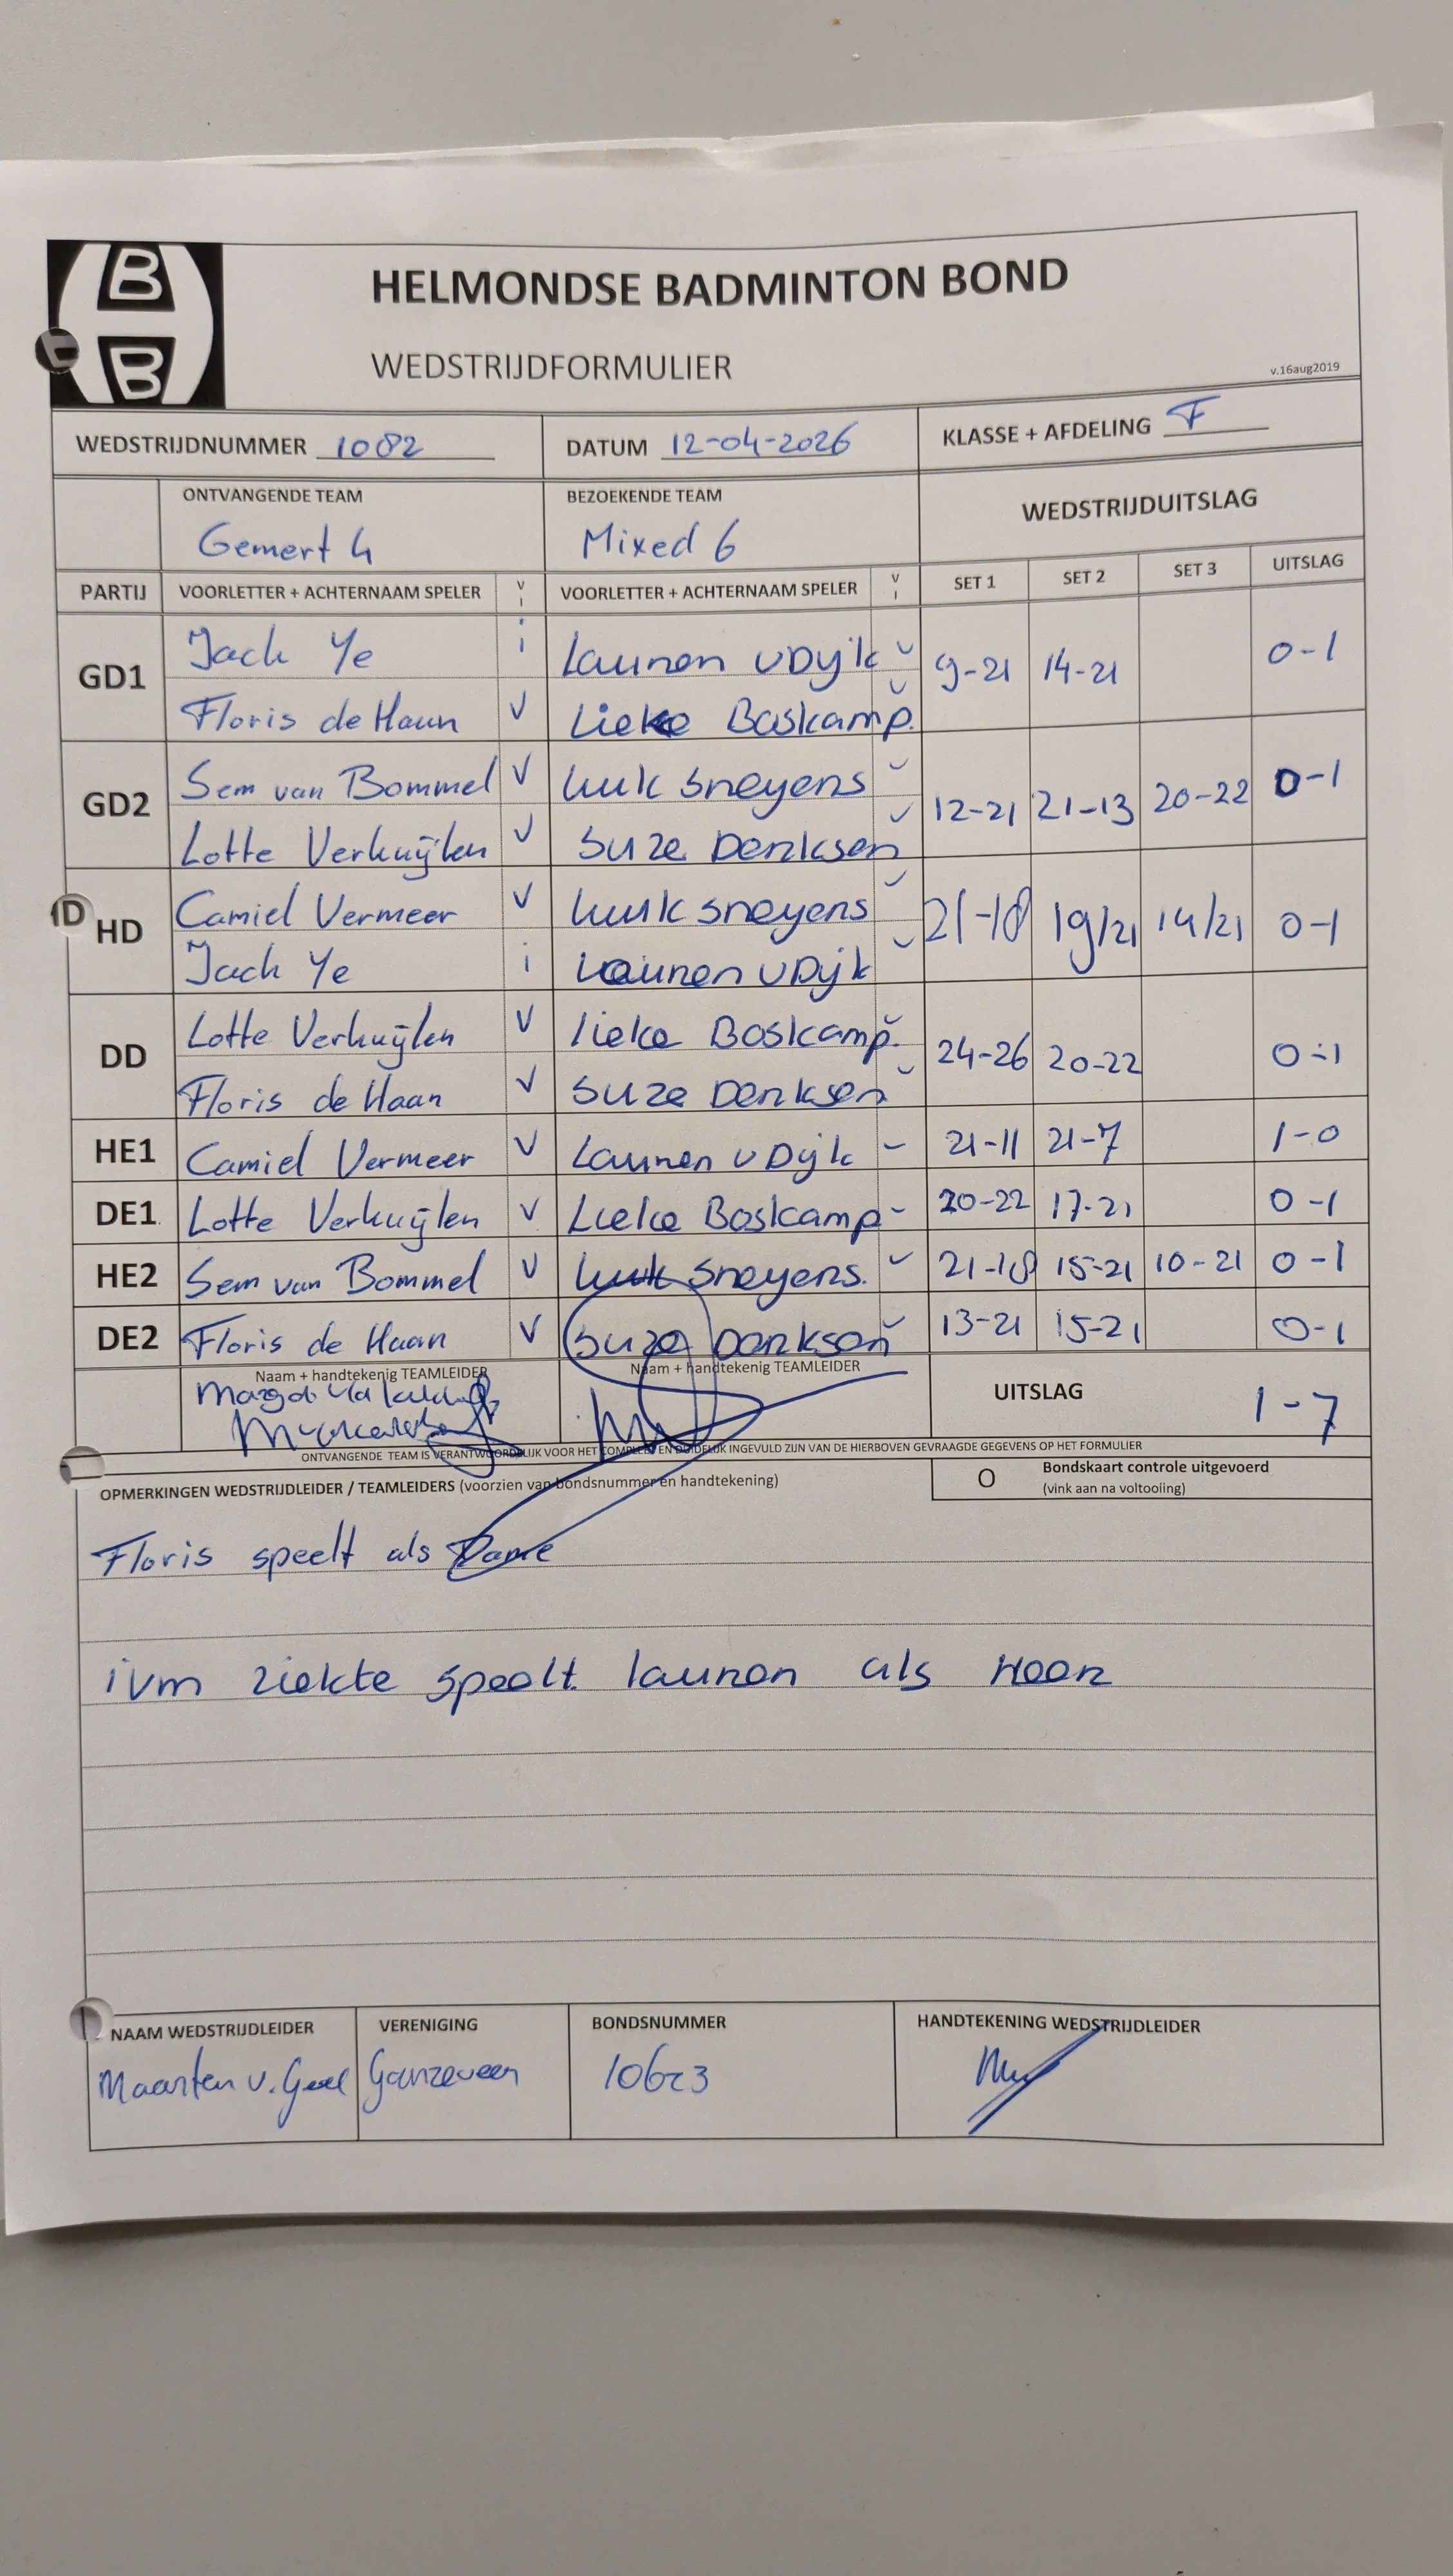 B
B
HELMONDSE BADMINTON BOND
WEDSTRIJDFORMULIER
v.16aug2019
WEDSTRIJDNUMMER 1082 DATUM 12-04-2026 KLASSE + AFDELING F
ONTVANGENDE TEAM BEZOEKENDE TEAM WEDSTRIJDUITSLAG
Gemert 4 Mixed 6
PARTIJ VOORLETTER + ACHTERNAAM SPELER V I VOORLETTER + ACHTERNAAM SPELER V I SET 1 SET 2 SET 3 UITSLAG
GD1 Jack Ye i Lauren v Dijk v 9-21 14-21 0-1
Floris de Haan v Lieke Boskamp. v
GD2 Sem van Bommel v Luuk Sneyens v 12-21 21-13 20-22 0-1
Lotte Verkuijlen v Suze Derksen v
HD Camiel Vermeer v Luuk Sneyens v 21-18 19/21 14/21 0-1
Jack Ye i Lauren v Dijk v
DD Lotte Verkuijlen v Lieke Boskamp. v 24-26 20-22 0-1
Floris de Haan v Suze Derksen v
HE1 Camiel Vermeer v Lauren v Dijk 21-11 21-7 1-0
DE1 Lotte Verkuijlen v Lieke Boskamp 20-22 17-21 0-1
HE2 Sem van Bommel v Luuk Sneyens. v 21-18 15-21 10-21 0-1
DE2 Floris de Haan v Suze Derksen v 13-21 15-21 0-1
Naam + handtekenig TEAMLEIDER Naam + handtekenig TEAMLEIDER UITSLAG 1-7
ONTVANGENDE TEAM IS VERANTWOORDELIJK VOOR HET COMPLEET EN DUIDELIJK INGEVULD ZIJN VAN DE HIERBOVEN GEVRAAGDE GEGEVENS OP HET FORMULIER
OPMERKINGEN WEDSTRIJDLEIDER / TEAMLEIDERS (voorzien van bondsnummer en handtekening) O Bondskaart controle uitgevoerd
(vink aan na voltooiing)
Floris speelt als Dame
ivm ziekte speelt lauren als Heer
NAAM WEDSTRIJDLEIDER VERENIGING BONDSNUMMER HANDTEKENING WEDSTRIJDLEIDER
Maarten v. Geel Ganzeveer